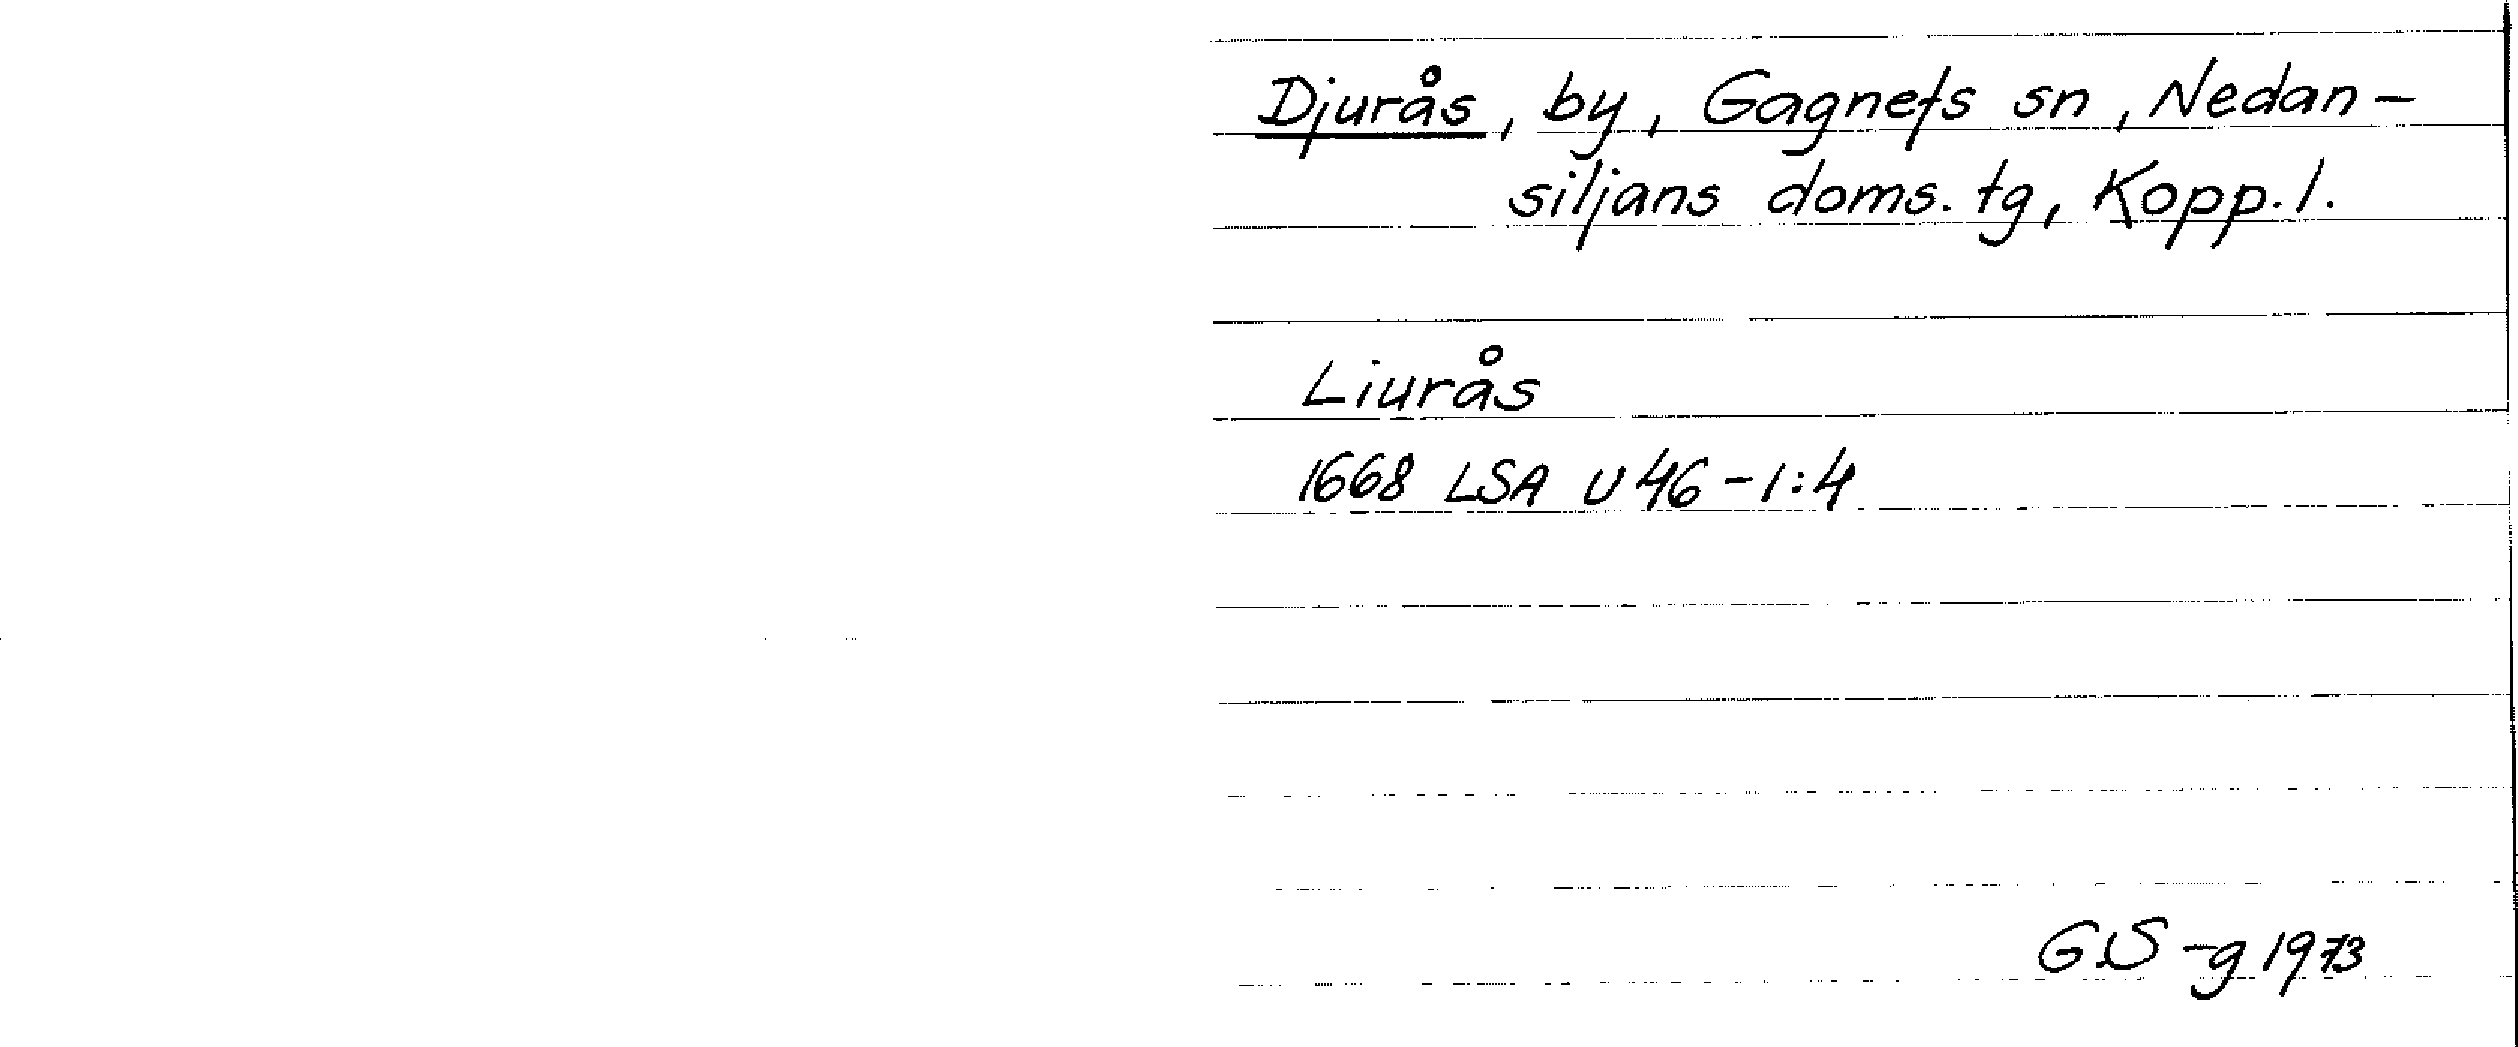 Djurås, by, Gagnefs sn, Nedan-
siljans doms. tg, Kopp. l.
Liurås
1668 LSA U46-1:4
GS-g 1973